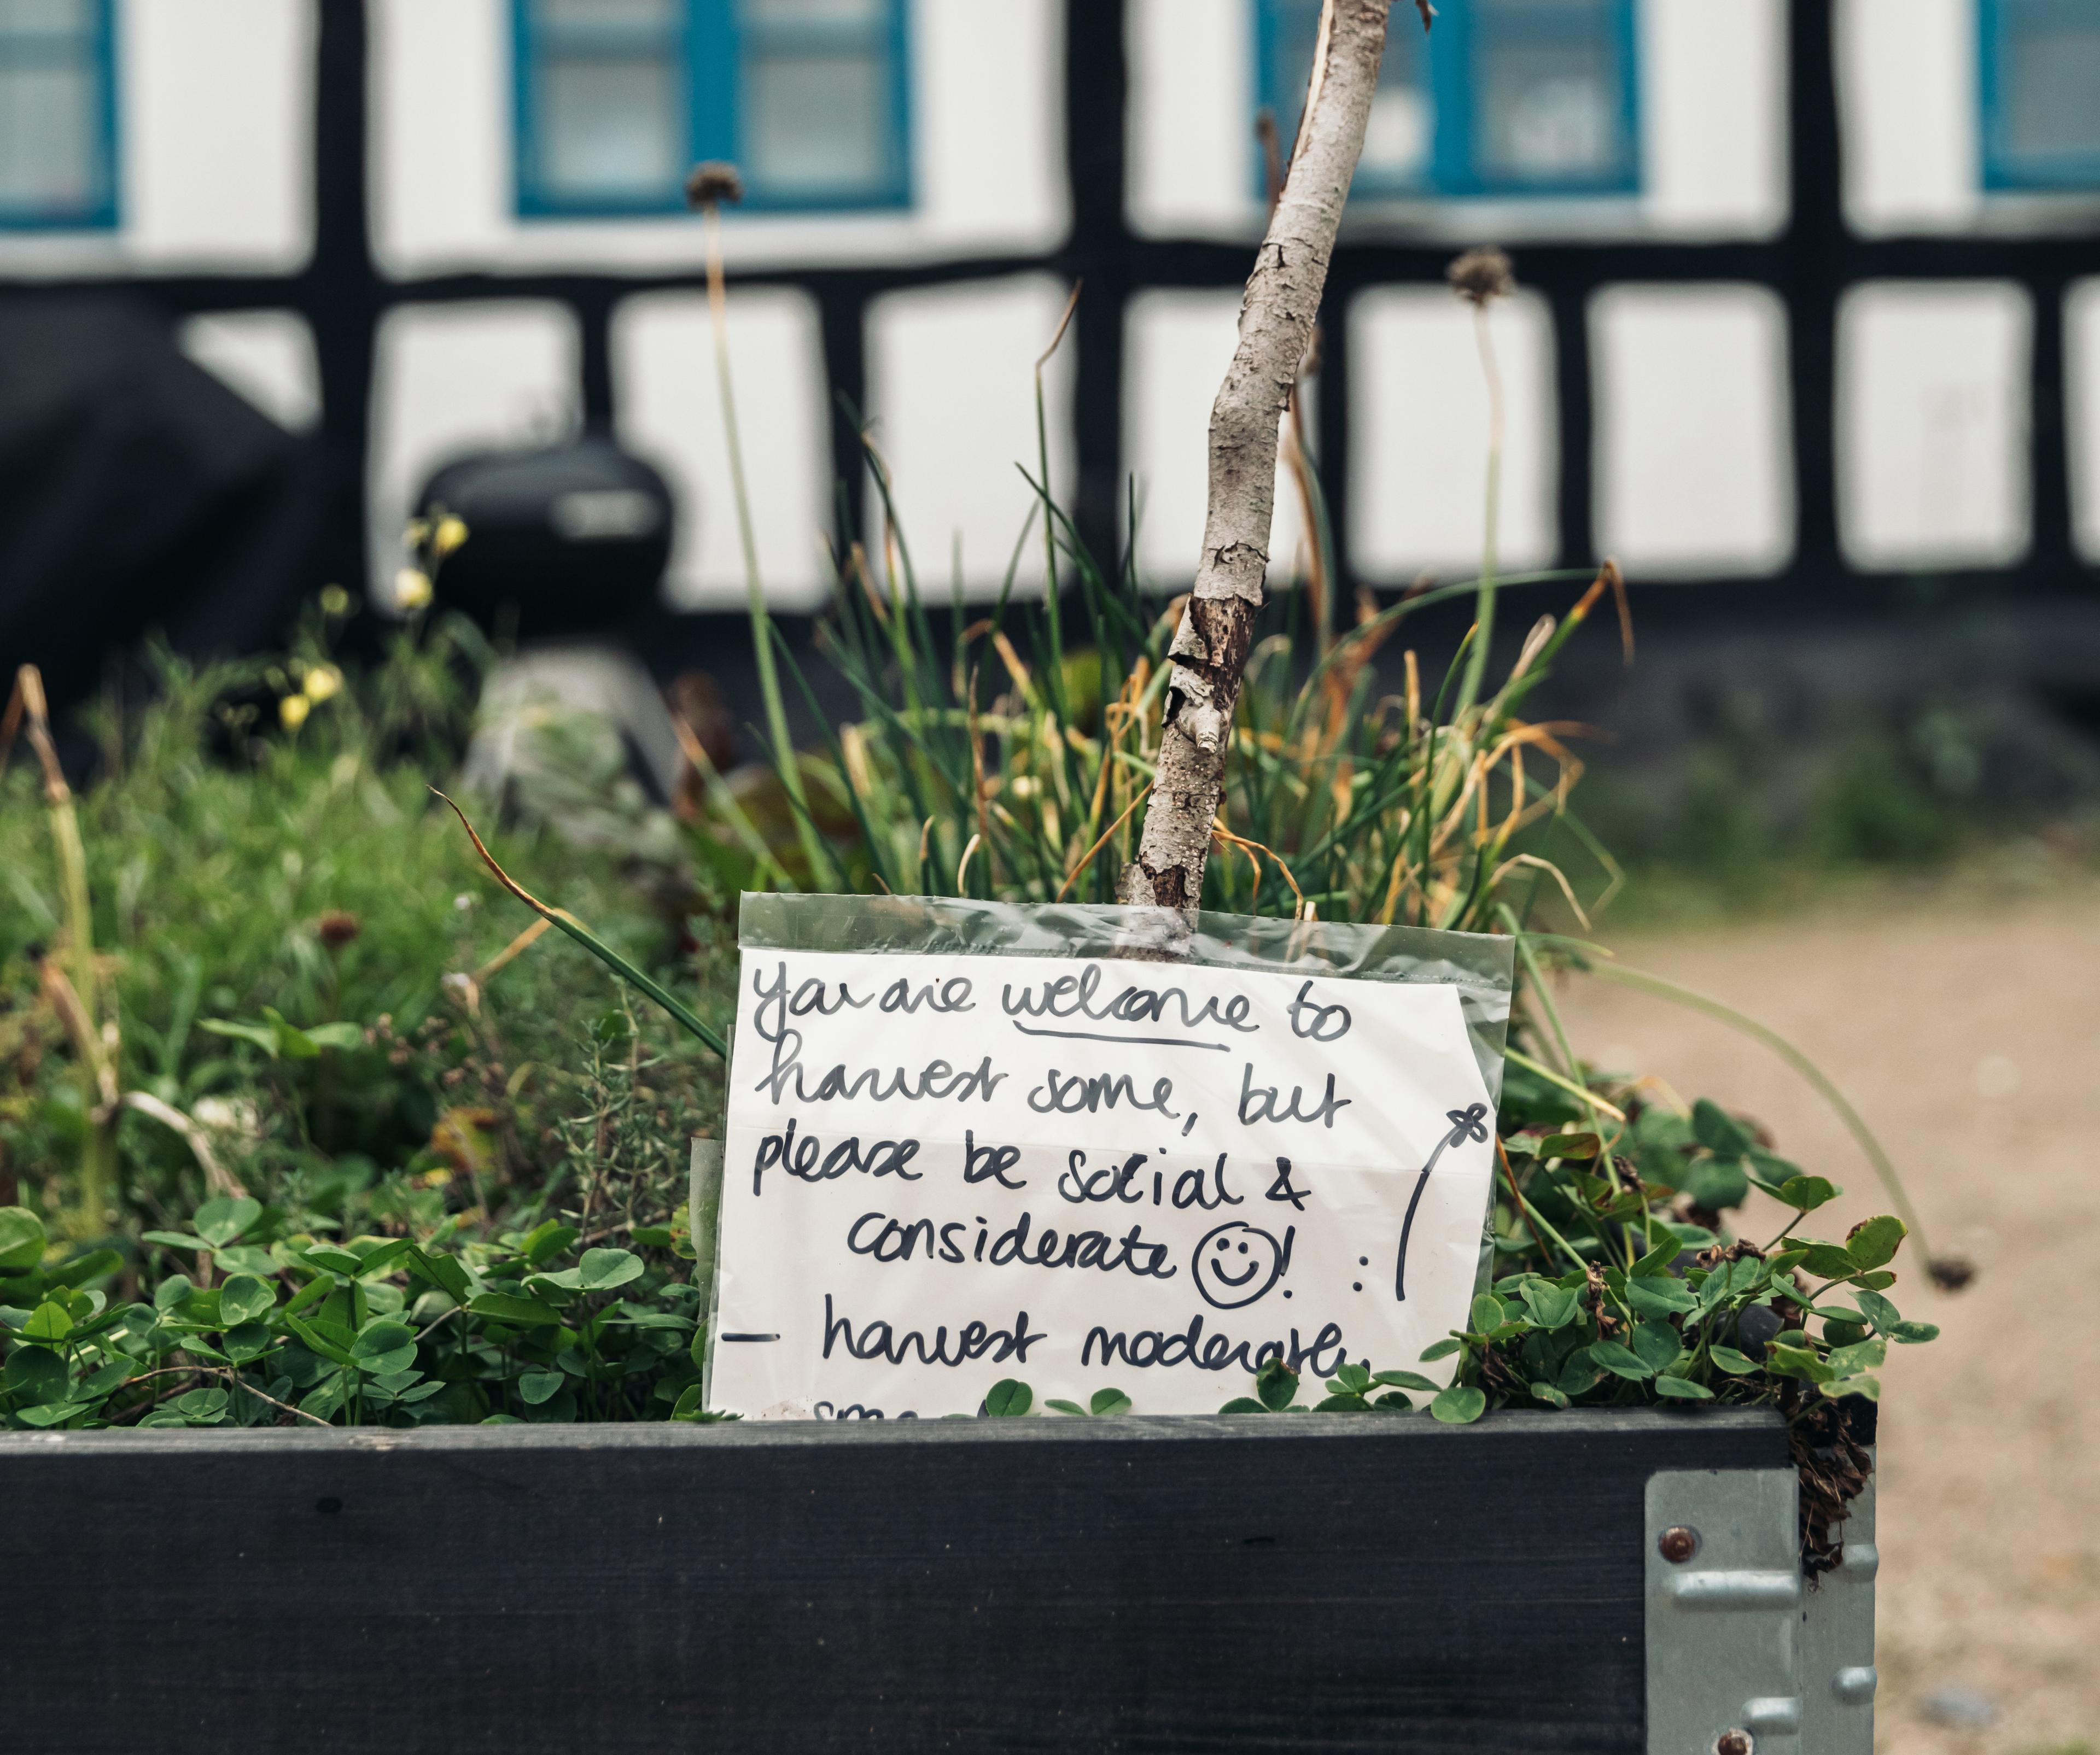 You are welcome to
harvest some, but
please be social &
considerate ☺!
– harvest moderately